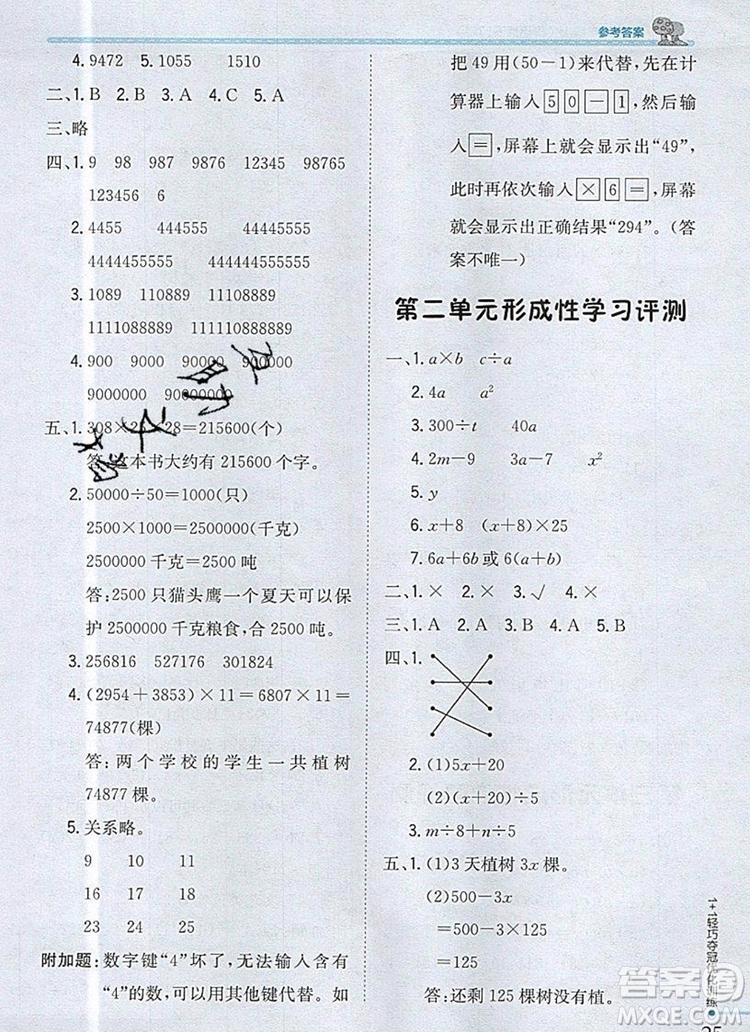 参考答案
4.9472 5.1055 1510
二、1.B 2.B 3.A 4.C 5.A
三、略
四、1.9 98 987 9876 12345 98765
123456 6
2.4455 444555 44445555
4444455555 444444555555
3.1089 110889 11108889
1111088889 111110888889
4.900 9000 90000 900000
9000000 90000000
五、1.308×25×28=215600(个)
答:这本书大约有 215600 个字。
2.50000÷50=1000(只)
2500×1000=2500000(千克)
2500000 千克=2500 吨
答:2500 只猫头鹰一个夏天可以保
护 2500000 千克粮食,合 2500 吨。
3.256816 527076 530241
4.(2954+3853)×11=6807×11=
74877(棵)
答:两个学校的学生一共植树
74877 棵。
5.关系略。
9 10 11
16 17 18
23 24 25
附加题:数字键“4”坏了,无法输入含有
“4”的数,可以用其他键代替。如
把 49 用(50-1)来代替,先在计
算器上输入50-1,然后输
入=,屏幕上就会显示出“49”,
此时再依次输入×6=,屏幕
就会显示出正确结果“294”。(答
案不唯一)
第二单元形成性学习评测
一、1.a×b c÷a
2.4a
3.300÷t 40a
4.2m-9 3x-7 a²
5.y
6.x+8 (x+8)×12
7.6a+6b或 6(a+b)
二、1.× 2.× 3.√ 4.×
三、1.A 2.A 3.A 4.A 5.B
四、1.
2.(1)5x+20
(2)(5x+20)÷5
3.m÷8+n÷5
五、1.(1)3 天植树 3x 棵。
(2)500-3x
=500-3×125
=125
答:还剩 125 棵树没有植。
1+1轻巧夺冠优化训练
25
答案圈
MXQE.COM